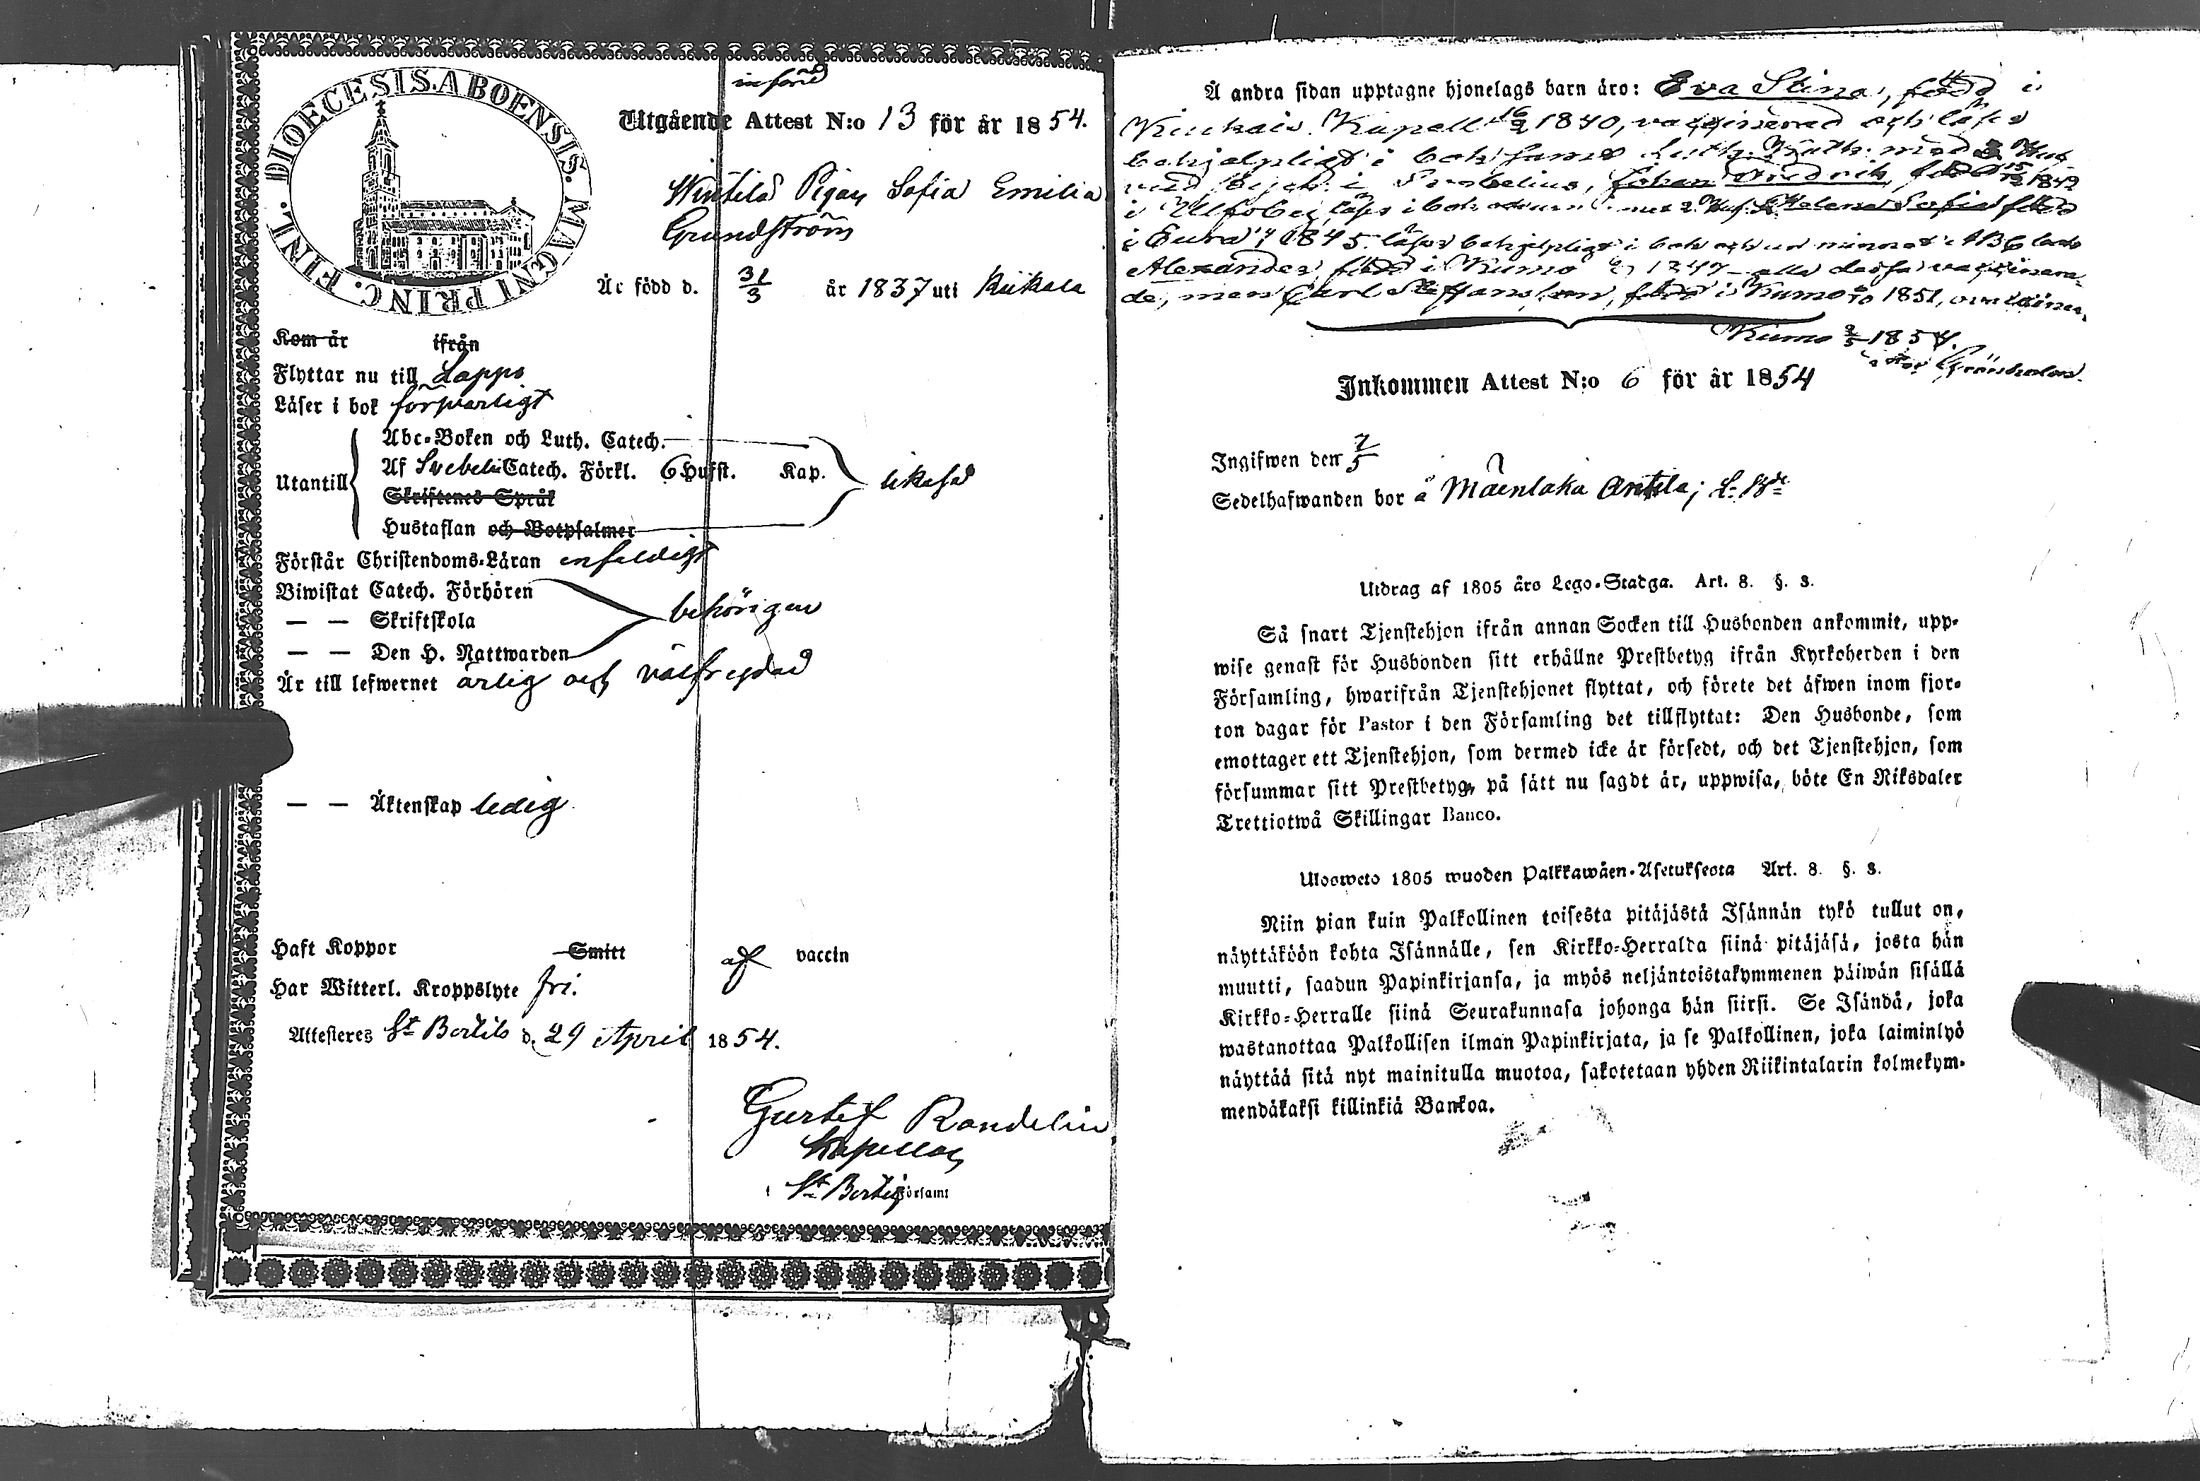 DIOECESIS. ABOENSIS. MAGNI PRINC. FINL.
införd
Utgående Attest N:o 13 för år 1854.
Pigan Sofia Emilia
Grundström
Är född d. 31/3 år 1837 uti Kiikala
Kom år ifrån
Flyttar nu till Lappo
Läser i bok försvarligt
Utantill
Abc-Boken och Luth. Catech.
Af Svebelii Catech. Förkl. 6 Hufst. Kap.
likaså
Skriftenes Språk
Hustaflan och Botpsalmer
Förstår Christendoms-Läran enfaldigt
Biwistat Catech. Förhören
— — Skriftskola
behörigen
— — Den H. Nattwarden
Är till lefwernet ärlig och välfrejdad
— — Äktenskap ledig.
Haft Koppor Smitt af vaccin
Har Witterl. Kroppslyte fri.
Attesteras St Bertils d. 29 April 1854.
Gustaf Randelin
Kapellan
i St Bertils Församl
Å andra sidan upptagne hjonelags barn äro: Eva Stina, född i
Kapell 1840, vaccinerad och läser
behjelpligt i bok samt Luth. Kath. med
Svebelius, Johan Fredrik, född 1842
i Ulfsby, läser i bok Helena Sofia född
i Eura 1845 läser behjelpligt i bok och ur minnet ABC bok
Alexander, född i Kumo 1847 alla dessa vaccinera-
de, men Carl född i Kumo 1851,
Kumo 1854.
Inkommen Attest N:o 6 för år 1854
Ingifwen den 7/5
Sedelhafwanden bor å Antila;
Utdrag af 1805 års Lego-Stadga. Art. 8. §. 3.
Så snart Tjenstehjon ifrån annan Socken till Husbonden ankommit, upp-
wise genast för Husbonden sitt erhållne Prestbetyg ifrån Kyrkoherden i den
Församling, hwarifrån Tjenstehjonet flyttat, och förete det äfwen inom fjor-
ton dagar för Pastor i den Församling det tillflyttat: Den Husbonde, som
emottager ett Tjenstehjon, som dermed icke är försedt, och det Tjenstehjon, som
försummar sitt Prestbetyg, på sätt nu sagdt är, uppwisa, böte En Riksdaler
Trettiotwå Skillingar Banco.
Uloswetö 1805 wuoden Palkkawäen-Asetuksesta Art. 8. §. 3.
Niin pian kuin Palkollinen toisesta pitäjästä Isännän tykö tullut on,
näyttäköön kohta Isännälle, sen Kirkko-Herralda siinä pitäjäsä, josta hän
muutti, saadun Papinkirjansa, ja myös neljäntoistakymmenen päiwän sisällä
Kirkko-Herralle siinä Seurakunnasa johonga hän siirsi. Se Isändä, joka
wastanottaa Palkollisen ilman Papinkirjata, ja se Palkollinen, joka laiminlyö
näyttää sitä nyt mainitulla muotoa, sakotetaan yhden Riikintalarin kolmekym-
mendäkaksi killinkiä Bankoa.